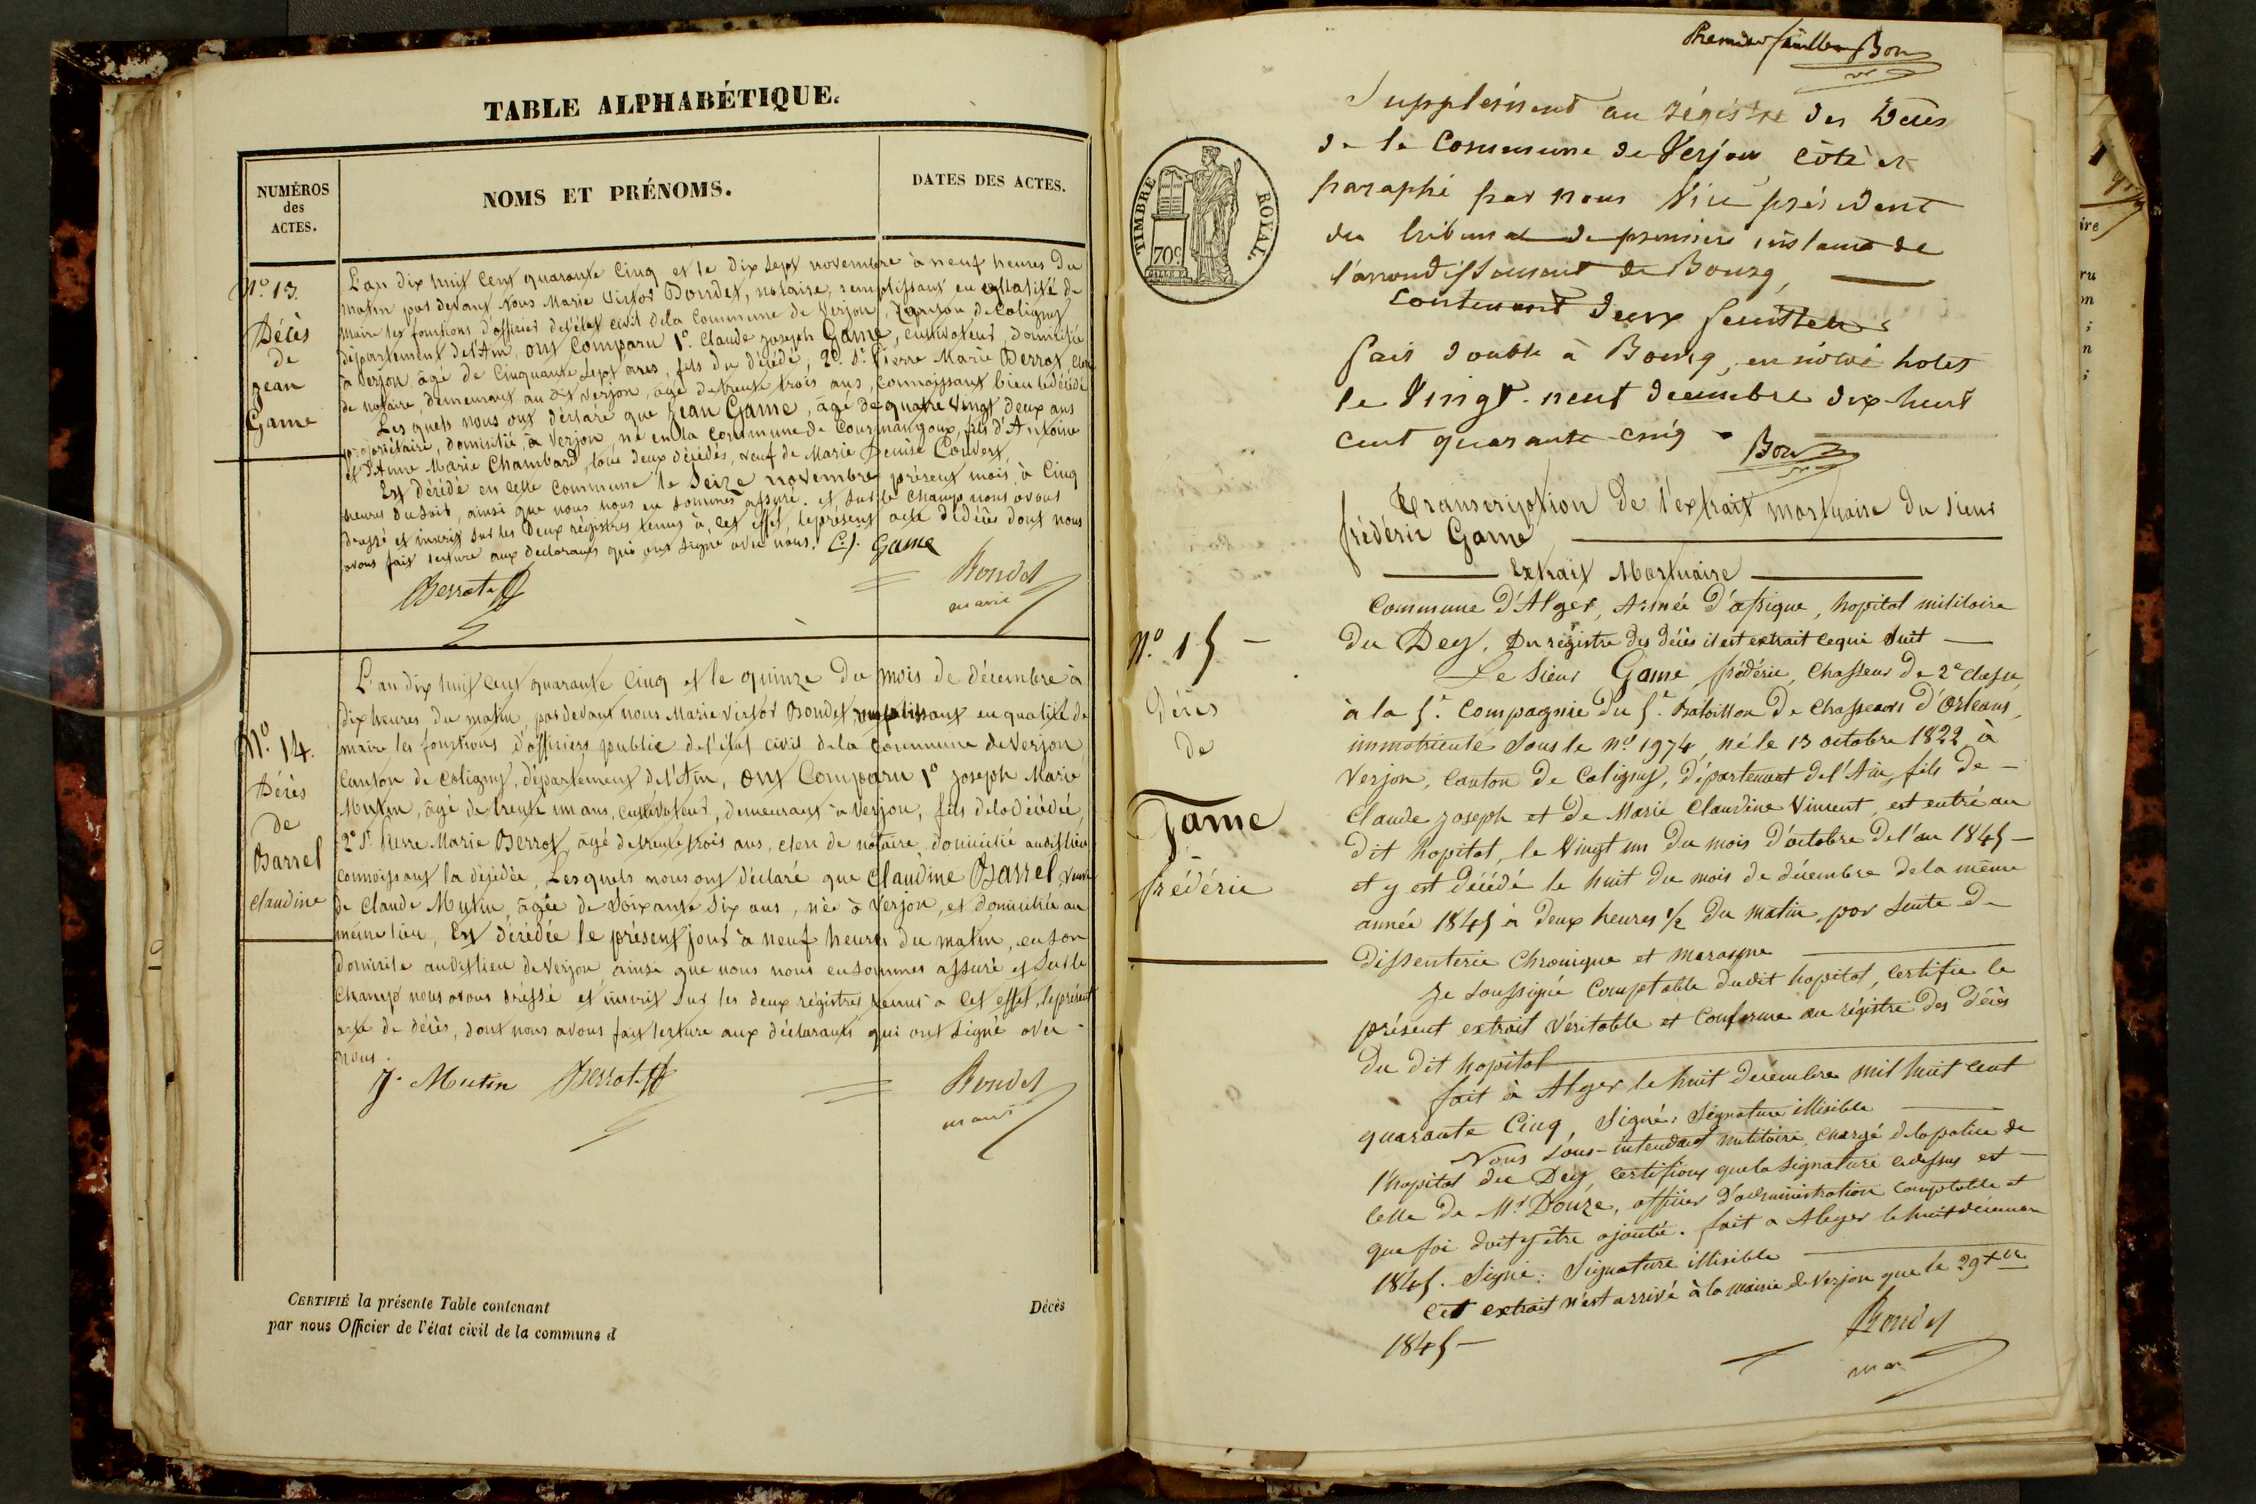 TABLE ALPHABÉTIQUE.
NUMÉROS
des
ACTES.
NOMS ET PRÉNOMS.
DATES DES ACTES.
N.o 13.
Décès
de
Jean
Game
L'an dix huit cent quarante Cinq et le dix Sept novembre à neuf heures du
matin par devant Nous Marie Victor Bondet, notaire, remplissant en qualité de
maire les fonctions d'officier de l'état civil de la Commune de Verjon, Canton de Coligny
département de l'Ain, ont Comparu 1.o Claude Joseph Game, cultivateur, domicilié
à Verjon, âgé de Cinquante Sept ans, fils du décédé, 2.o S.r Pierre Marie Perrot, Clerc
de notaire, demeurant au dit Verjon, âgé de trente trois ans, connoissant bien le décédé
Les quels nous ont déclaré que Jean Game, âgé de quatre Vingt deux ans
propriétaire, domicilié à Verjon, né en la commune de Courmangoux, fils d'Antoine
et d'Anne Marie Chambard, tous deux décédés, veuf de Marie Denise Convert,
Est décédé en cette commune le Seize novembre présent mois, à Cinq
heures du soir, ainsi que nous nous en sommes assuré. et sur le champ nous avons
dressé et inscrit sur les deux régistres tenus à cet effet, le présent acte de décès dont nous
avons fait lecture aux déclarants qui ont signé avec nous. C. J. Game
Perrot
Bondet
maire
N.o 14.
Décès
de
Barrel
Claudine
L'an dix huit cent quarante Cinq et le quinze du mois de décembre à
dix heures du matin, par devant nous Marie Victor Bondet remplissant en qualité de
maire les fonctions d'officiers public de l'état civil de la Commune de Verjon
Canton de Coligny, département de l'Ain, ont Comparu 1.o Joseph Marie
Mutin, âgé de trente un ans, cultivateur, demeurant à Verjon, fils de la décédée,
2.o S.r Pierre Marie Perrot, âgé de trente trois ans, clerc de notaire, domicilié audit lieu
connoissant la décédée, Lesquels nous ont déclaré que Claudine Barrel, veuve
de Claude Mutin, âgée de Soixante Six ans, née à Verjon, et domiciliée au
même lieu, Est décédée le présent jour à neuf heures du matin, en son
domicile audit lieu de Verjon, ainsi que nous nous en sommes assuré et Sur le
Champ nous avons dréssé et inscrit Sur les deux régistres tenus à cet effet, le présent
acte de décès, dont nous avons fait lecture aux déclarants qui ont signé avec
nous.
J. Mutin Perrot
Bondet
maire
CERTIFIÉ la présente Table contenant Décès
par nous Officier de l'état civil de la commune d
Premier feuillet Bon
TIMBRE ROYAL.
70c
Supplément au régistre des Décès
de la Commune de Verjon côté et
paraphé par nous Vice président
du tribunal de première instance de
l'arrondissement de Bourg,
Contenant deux feuillets
fait double à Bourg, en notre hotel
le Vingt-neuf decembre dix huit
cent quarante-cinq. Bon
Transcription de l'extrait mortuaire du Sieur
frédéric Game
Extrait Mortuaire
Commune d'Alger, Armée d'afrique, hopital militaire
du Dey, Du régistre des décès il est extrait ce qui suit
N.o 15
Décès
de
Game
frédéric
Le Sieur Game frédéric, Chasseur de 2e classe,
à la 5.e Compagnie du 5.e Bataillon de Chasseurs d'Orléans,
immatriculé sous le N.o 1974, né le 13 octobre 1822 à
Verjon, Canton de Coligny, département de l'Ain, fils de
Claude Joseph et de Marie Claudine Vincent, est entré au
dit hopital, le Vingt un du mois d'octobre de l'an 1845
et y est décédé le huit du mois de décembre de la même
année 1845 à deux heures ½ du matin par suite de
dissenterie Chronique et marasme
Je soussigné Comptable du dit hopital, certifie le
présent extrait Véritable et Conforme au régistre des décès
du dit hopital
fait à Alger le huit decembre mil huit cent
quarante Cinq, Signé: Signature illisible
Nous Sous-intendant militaire, chargé de la police de
l'hopital du Dey, certifions que la signature ci dessus est
celle de Mr Douze, officier d'administration comptable et
que foi doit y être ajoutée. fait a Alger le huit décembre
1845. Signé: Signature illisible
Cet extrait n'est arrivé à la mairie de Verjon que le 29 Xbre
1845
Bondet